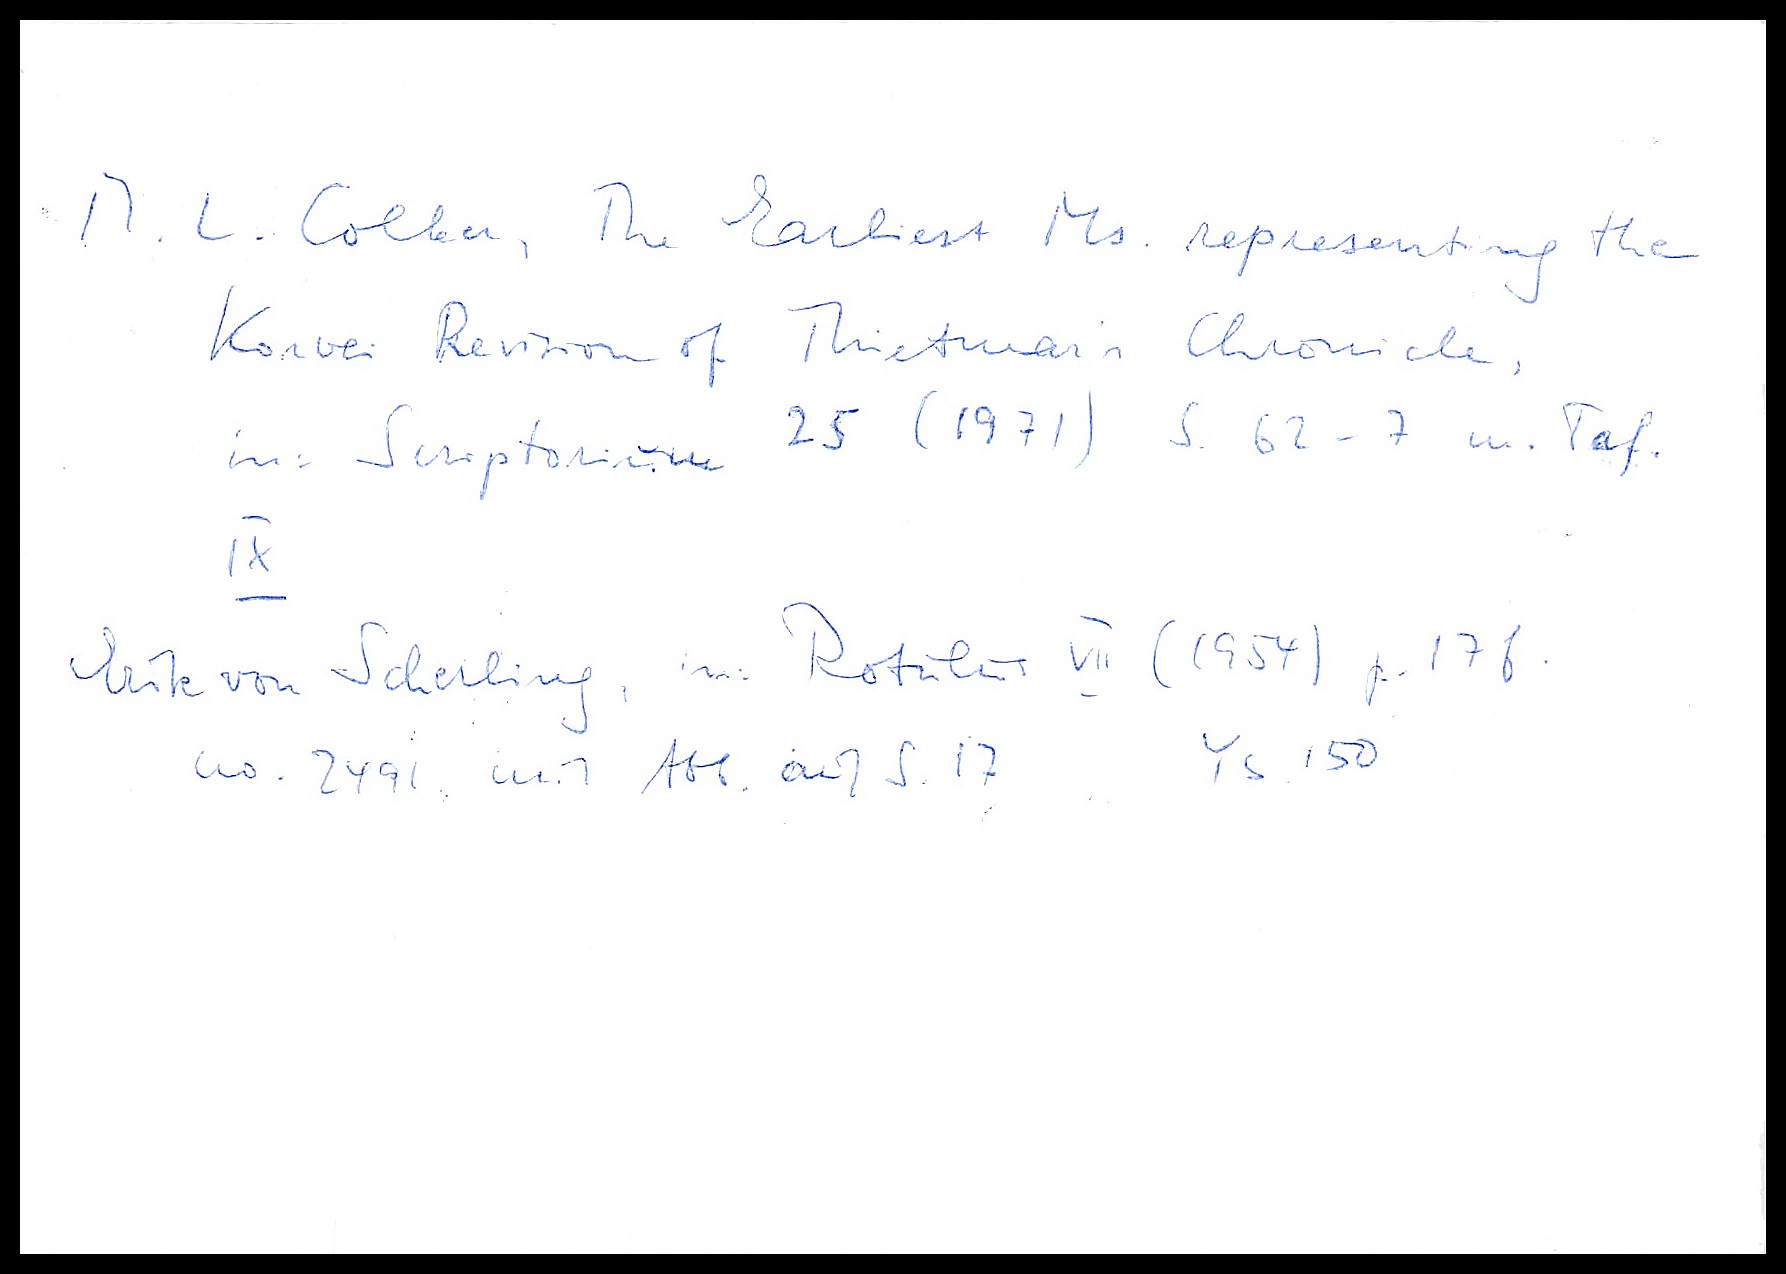 M. L. Colker, The Earliest Ms. representing the
Korvei Revision of Thietmar's Chronicle,
in: Scriptorium 25 (1971) S. 62-7 m. Taf.
IX
Erik von Scherling, in: Rotulus VII (1954) p. 17f.
no. 2491 mit Abb. auf S. 17 150